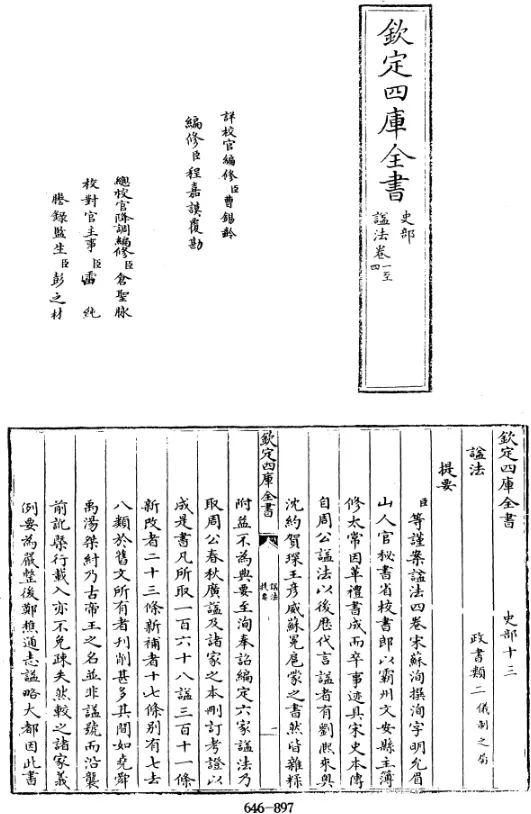 欽定四庫全書
史部
諡法卷一至四
詳校官編修臣曹錫齡
編修臣程嘉謨覆勘
總校官降調編修臣倉聖脉
校對官主事臣雷純
謄錄監生臣彭之材
欽定四庫全書 史部十三
諡法 政書類二 儀制之屬
提要
臣等謹案諡法四卷宋蘇洵撰洵字明允眉
山人官秘書省校書郎以霸州文安縣主簿
修太常因革禮書成而卒事迹具宋史本傳
自周公諡法以後歴代言諡者有劉熙來奥
沈約賀琛王彦威蘇冕扈蒙之書然皆雜糅
欽定四庫全書
諡法
提要
一
附益不為典要至洵奉詔編定六家諡法乃
取周公春秋廣諡及諸家之本刪訂考證以
成是書凡所取一百六十八諡三百十一條
新改者二十三條新補者十七條别有七去
八類於舊文所有者刋削甚多其間如堯舜
禹湯桀紂乃古帝王之名並非諡號而沿襲
前訛槩行載入亦不免疎失然較之諸家義
例要為嚴整後鄭樵通志諡略大都因此書
646-897